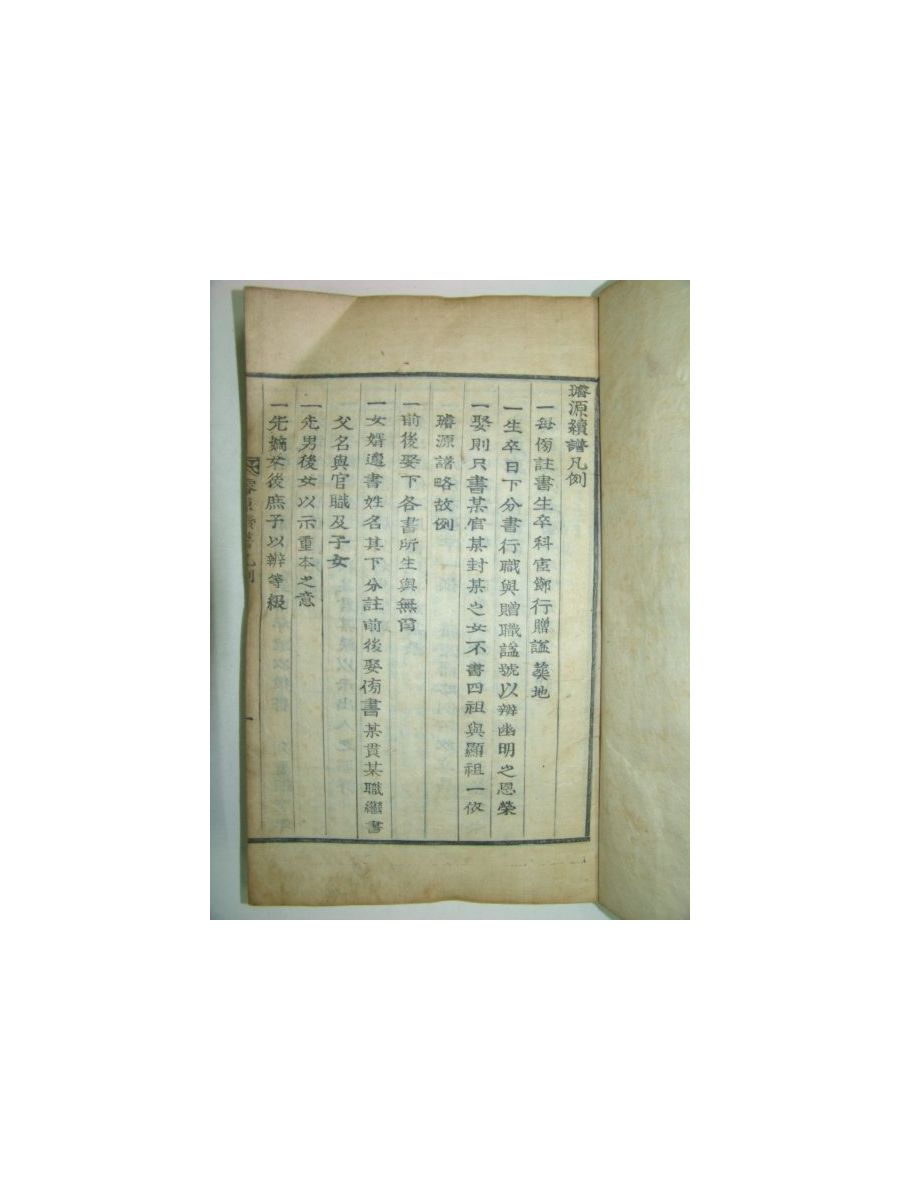 璿源續譜凡例
一每傍註書生卒科宦鄕行贈諡葬地
一生卒日下分書行職與贈職諡號以辨幽明之恩榮
一娶則只書某官某封某之女不書四祖與顯祖一依
璿源譜略故例
一前後娶下各書所生與無育
一女婿邊書姓名其下分註前後娶傍書某貫某職繼書
父名與官職及子女
一先男後女以示重本之意
一先嫡女後庶子以辨等級